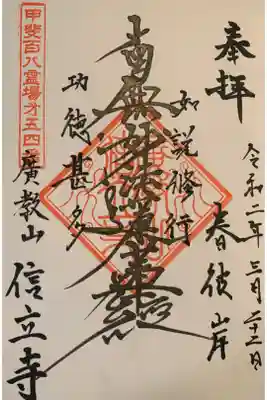 奉拝
令和二年三月二十二日
春彼岸
如説修行
南無妙法蓮華経
功徳甚多
甲斐百八霊場第五四番
廣教山
信立寺